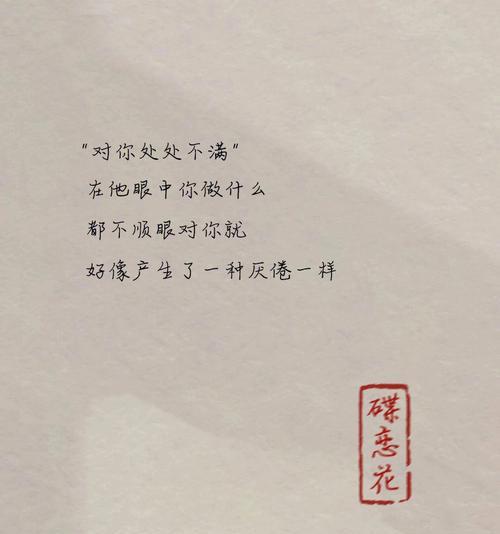 "对你处处不满"
在他眼中你做什么
都不顺眼对你就
好像产生了一种厌倦一样
碟恋花